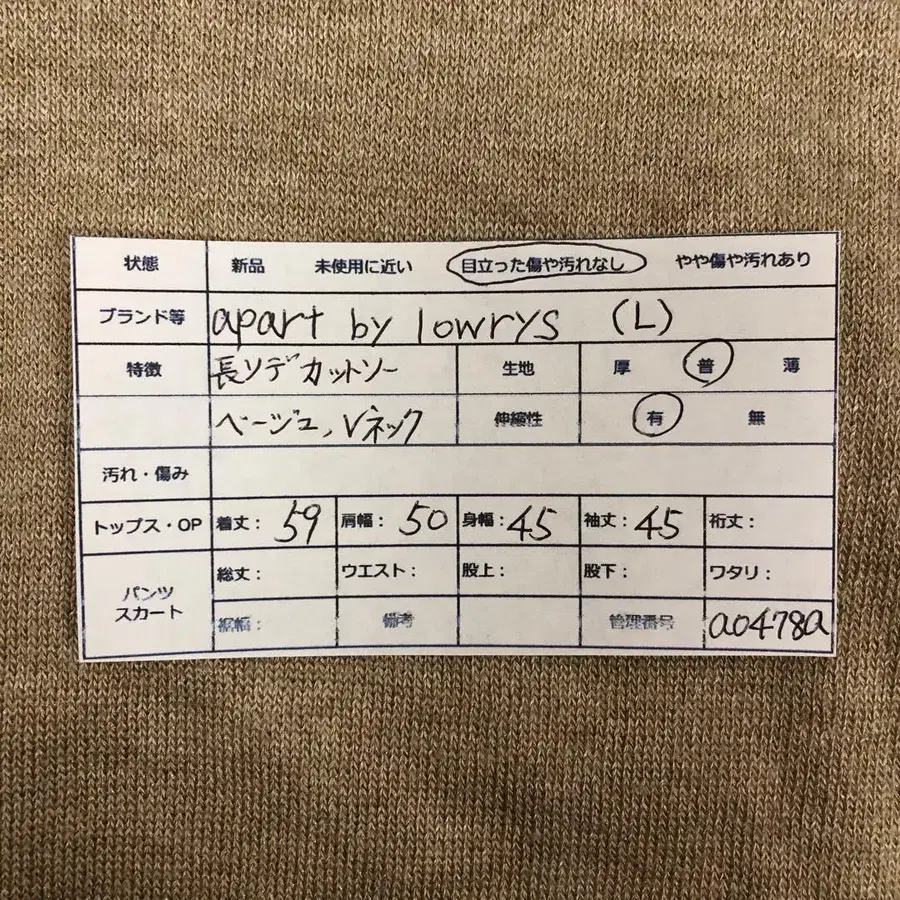 状態 新品 未使用に近い 目立った傷や汚れなし やや傷や汚れあり
ブランド等 apart by lowrys (L)
特徴 長ソデカットソー 生地 厚 普 薄
ベージュ, Vネック 伸縮性 有 無
汚れ・傷み
トップス・OP 着丈: 59 肩幅: 50 身幅: 45 袖丈: 45 裄丈:
パンツ スカート 総丈: ウエスト: 股上: 股下: ワタリ:
裾幅: 備考 管理番号 a0478a